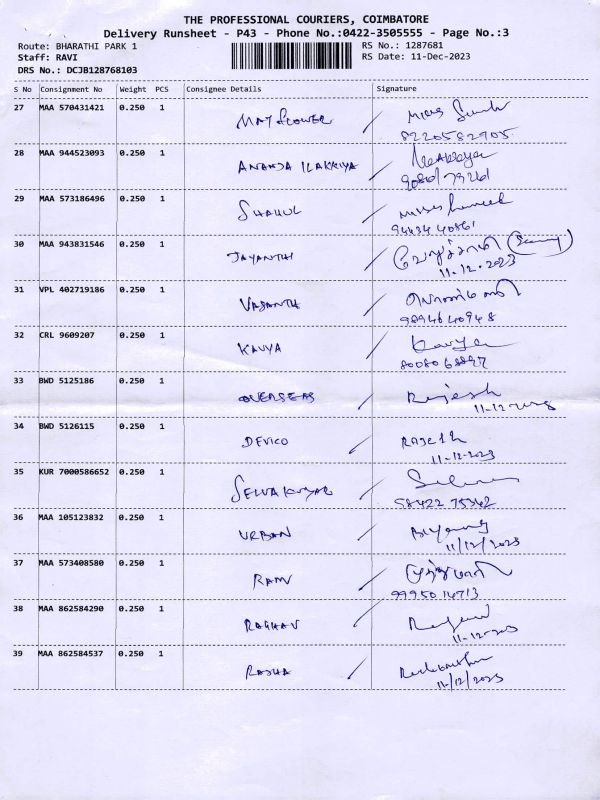 THE PROFESSIONAL COURIERS, COIMBATORE
Delivery Runsheet - P43 - Phone No.:0422-3505555 - Page No.:3
Route: BHARATHI PARK 1 RS No.: 1287681
Staff: RAVI RS Date: 11-Dec-2023
DRS No.: DCJB128768103
S No Consignment No Weight PCS Consignee Details Signature
27 MAA 570431421 0.250 1 MAYFLOWER
8220582905
28 MAA 944523093 0.250 1 ANANDA ILAKKIYA
29 MAA 573186496 0.250 1 SHAHUL
94434 40861
30 MAA 943831546 0.250 1 JAYANTHI
11-12-2023
31 VPL 402719186 0.250 1 VASANTH
98946 40948
32 CRL 9609207 0.250 1 KAVYA Kavya
80080 68897
33 BWD 5125186 0.250 1 OVERSEAS Rajesh
11-12-2023
34 BWD 5126115 0.250 1 DEVICO RAJESH
11-12-2023
35 KUR 7000586652 0.250 1 SELVAKUMAR
58422 75342
36 MAA 105123832 0.250 1 URBAN
11/12/2023
37 MAA 573408580 0.250 1 RAMU
99950 14713
38 MAA 862584290 0.250 1 RAGHAV
11-12-2023
39 MAA 862584537 0.250 1 RADHA
11/12/2023